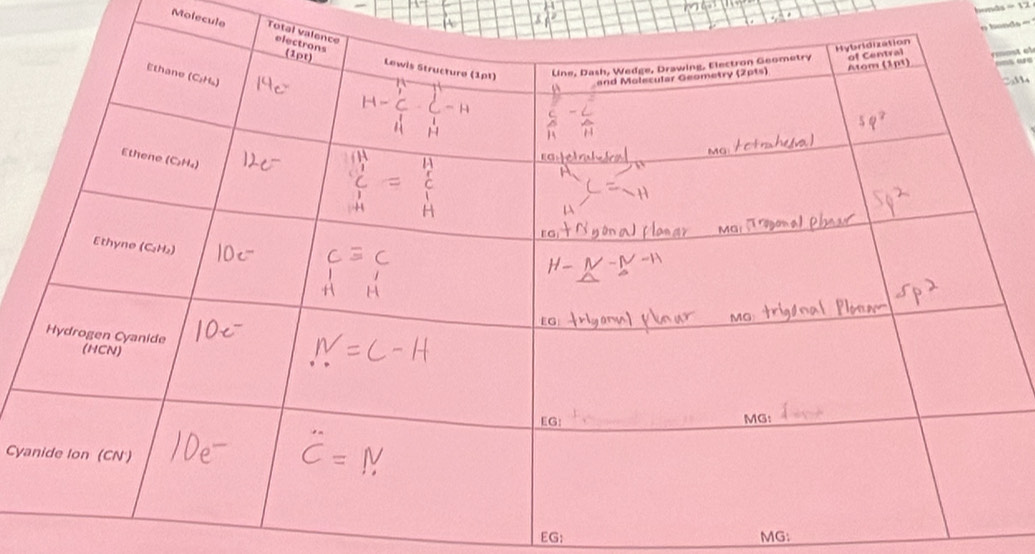 Molecule
Total valence
electrons
(1pt)
Lewis Structure (1pt)
Line, Dash, Wedge, Drawing, Electron Geometry
and Molecular Geometry (2pts)
Hybridization
of Central
Atom (1pt)
Ethane (C₂H₆)
14e-
H H
H-C-C-H
H H
H
C-C
H H
EG: tetrahedral
MG: tetrahedral
sp³
Ethene (C₂H₄)
12e-
H H
C = C
H H
H H
C=
H H
EG: trigonal planar
MG: Trogonal planar
Sp2
Ethyne (C₂H₂)
10e-
C ≡ C
H H
H-N-N-H
EG: trigonal planar
MG: trigonal Planar
Sp2
Hydrogen Cyanide
(HCN)
10e-
N=C-H
EG:
MG:
Cyanide Ion (CN⁻)
10e-
C=N
EG:
MG: